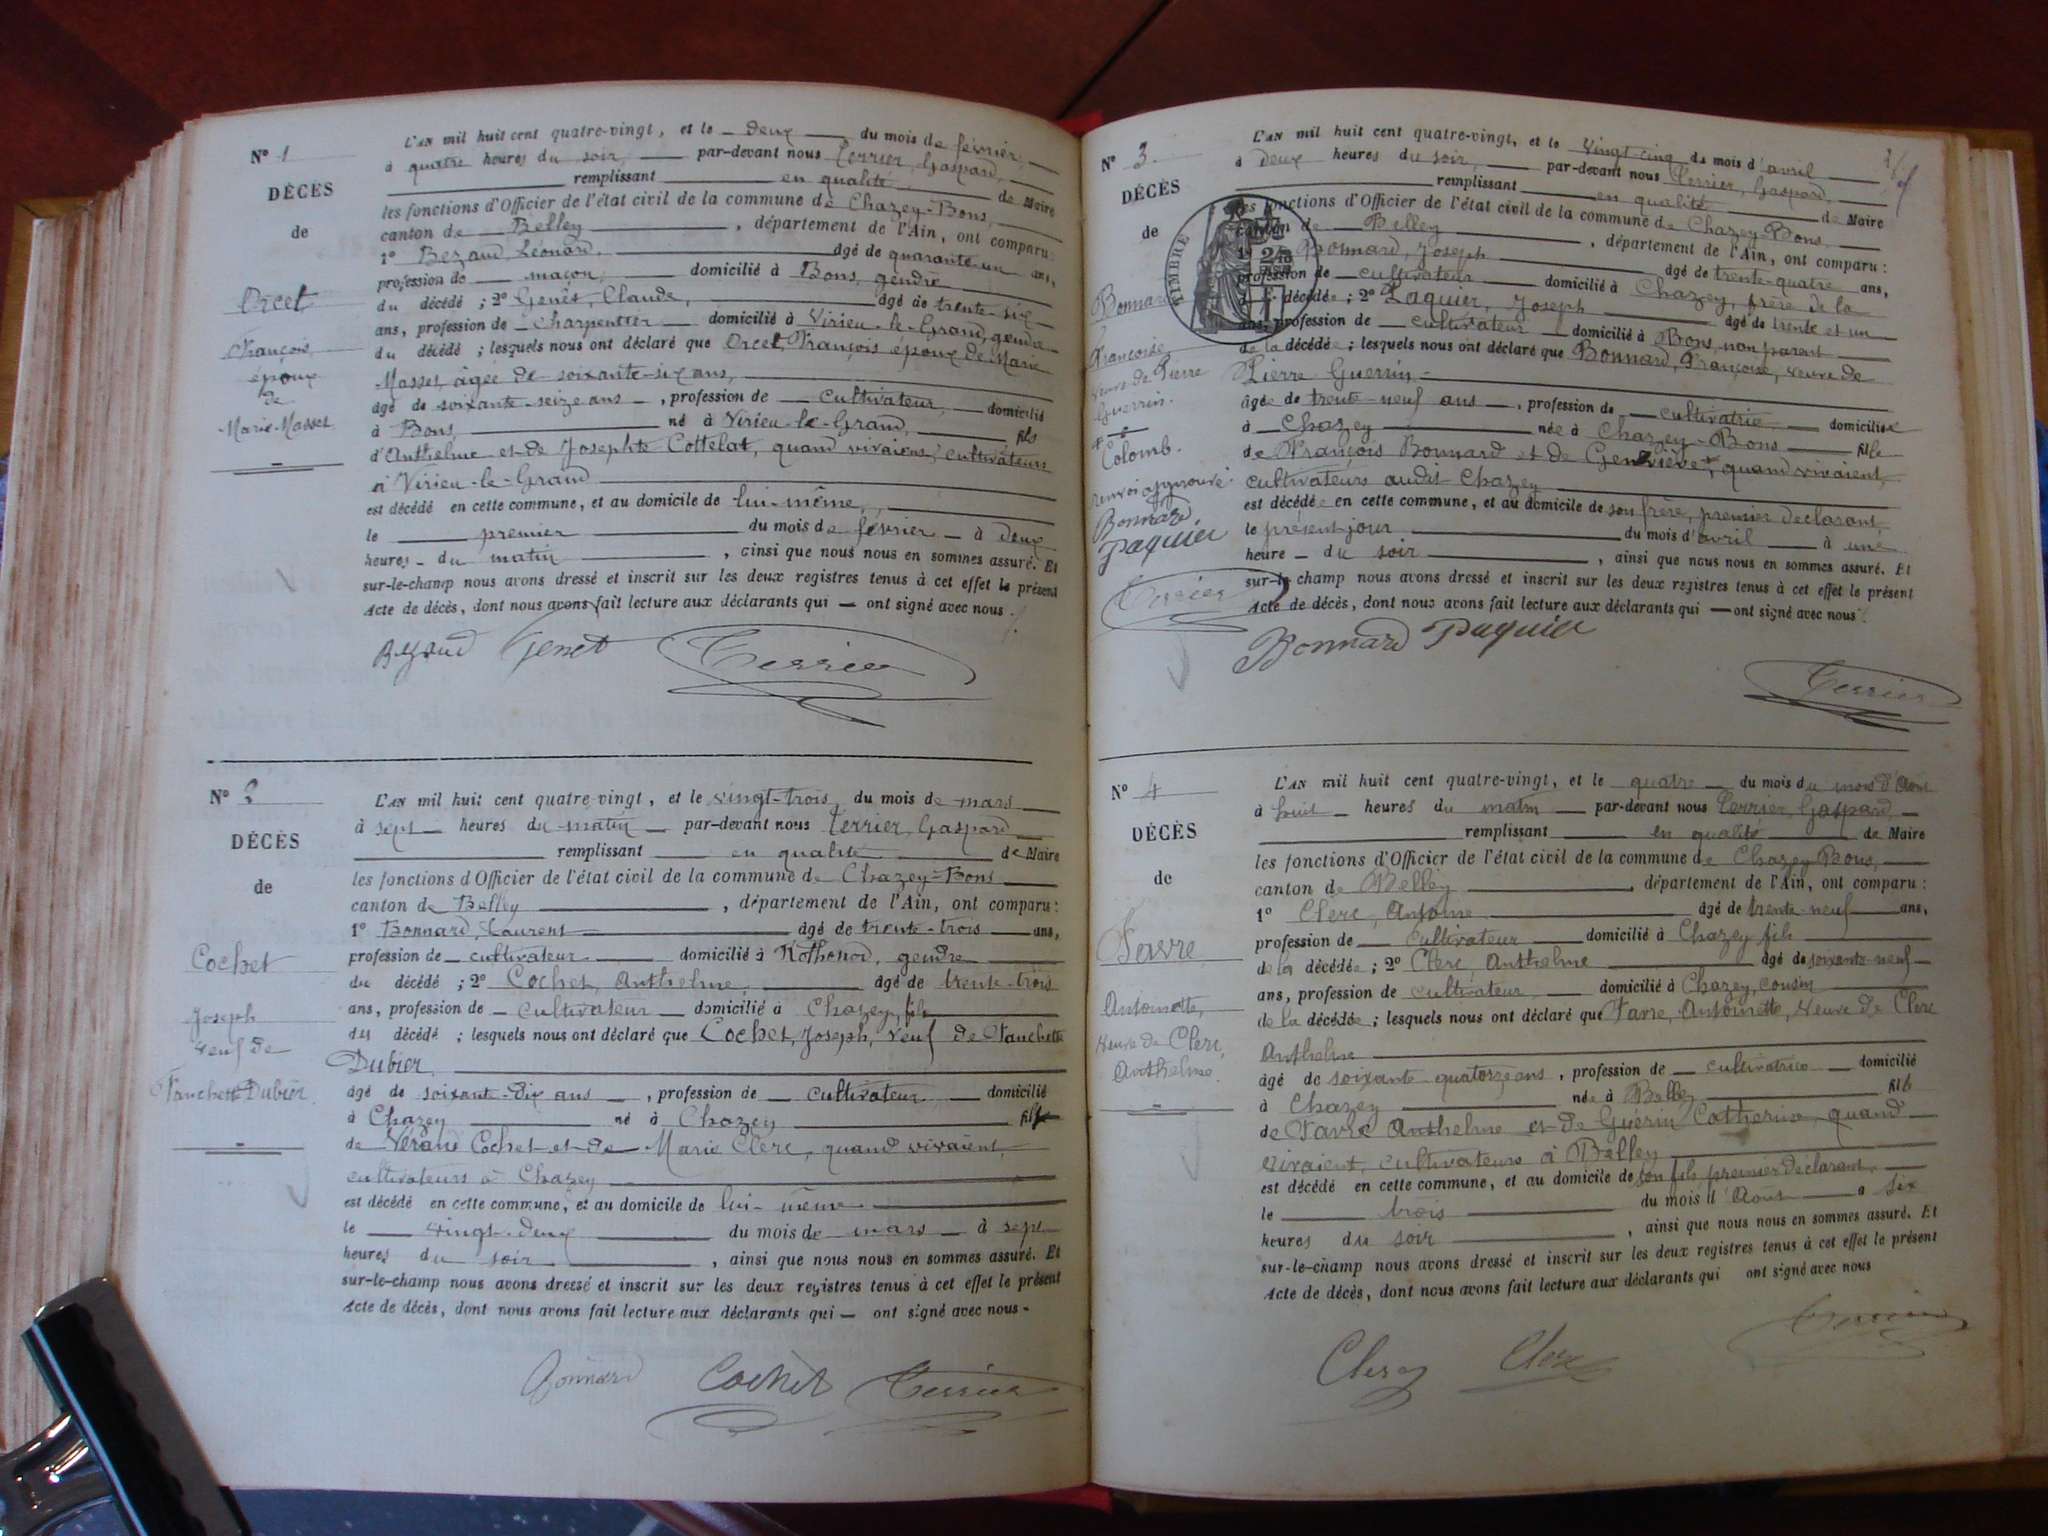 N° 1
DÉCÈS
de
Orcet
François
époux
de
Marie Masset
L'AN mil huit cent quatre-vingt, et le deux du mois de février
à quatre heures du soir, par-devant nous Terrier, Gaspard,
remplissant en qualité de Maire
les fonctions d'Officier de l'état civil de la commune de Chazey-Bons,
canton de Belley, département de l'Ain, ont comparu:
1° Bezaud Léonard, âgé de quarante-un ans,
profession de maçon, domicilié à Bons, gendre
du décédé ; 2° Genet, Claude, âgé de trente-six
ans, profession de charpentier domicilié à Virieu-le-Grand, gendre
du décédé ; lesquels nous ont déclaré que Orcet, François époux de Marie
Masset, âgée de soixante-six ans,
âgé de soixante-seize ans, profession de cultivateur, domicilié
à Bons né à Virieu-le-Grand, fils
d'Anthelme et de Josephte Cottelat, quand vivaient, cultivateurs
à Virieu-le-Grand
est décédé en cette commune, et au domicile de lui-même,
le premier du mois de février à deux
heures du matin, ainsi que nous nous en sommes assuré. Et
sur-le-champ nous avons dressé et inscrit sur les deux registres tenus à cet effet le présent
Acte de décès, dont nous avons fait lecture aux déclarants qui — ont signé avec nous.
Genet Terrier
N° 2
DÉCÈS
de
Cochet
Joseph
veuf de
Fanchette Dubier
L'AN mil huit cent quatre-vingt, et le vingt-trois du mois de mars
à sept heures du matin par-devant nous Terrier, Gaspard
remplissant en qualité de Maire
les fonctions d'Officier de l'état civil de la commune de Chazey-Bons
canton de Belley, département de l'Ain, ont comparu:
1° Bonnard, Laurent âgé de trente-trois ans,
profession de cultivateur domicilié à Rothonod, gendre
du décédé ; 2° Cochet, Anthelme, âgé de trente-trois
ans, profession de cultivateur domicilié à Chazey, fils
du décédé ; lesquels nous ont déclaré que Cochet, Joseph, veuf de Fanchette
Dubier,
âgé de soixante-dix ans, profession de cultivateur domicilié
à Chazey né à Chazey fils
de Vérand Cochet et de Marie Clerc, quand vivaient,
cultivateurs à Chazey
est décédé en cette commune, et au domicile de lui-même
le vingt-deux du mois de mars à sept
heures du soir, ainsi que nous nous en sommes assuré. Et
sur-le-champ nous avons dressé et inscrit sur les deux registres tenus à cet effet le présent
Acte de décès, dont nous avons fait lecture aux déclarants qui — ont signé avec nous.
Bonnard Cochet Terrier
N° 3
DÉCÈS
de
Bonnard
Françoise
veuve de Pierre
Guerrin.
Colomb.
renvoi approuvé.
Bonnard
Paquier
Terrier
TIMBRE
L'AN mil huit cent quatre-vingt, et le vingt cinq du mois d'avril
à deux heures du soir, par-devant nous Terrier, Gaspard,
remplissant en qualité de Maire
les fonctions d'Officier de l'état civil de la commune de Chazey-Bons,
canton de Belley, département de l'Ain, ont comparu:
1° Bonnard, Joseph âgé de trente-quatre ans,
profession de cultivateur domicilié à Chazey, frère de la
décédée ; 2° Paquier, Joseph âgé de trente et un
ans, profession de cultivateur domicilié à Bons, non parent
de la décédée ; lesquels nous ont déclaré que Bonnard, Françoise, veuve de
Pierre Guerrin
âgée de trente-neuf ans, profession de cultivatrice domiciliée
à Chazey née à Chazey-Bons fille
de François Bonnard et de Geneviève, quand vivaient,
cultivateurs audit Chazey
est décédée en cette commune, et au domicile de son frère, premier déclarant
le présent jour du mois d'avril à une
heure du soir, ainsi que nous nous en sommes assuré. Et
sur-le-champ nous avons dressé et inscrit sur les deux registres tenus à cet effet le présent
Acte de décès, dont nous avons fait lecture aux déclarants qui — ont signé avec nous.
Bonnard Paquier
Terrier
N° 4
DÉCÈS
de
Favre
Antoinette,
veuve de Clerc,
Anthelme.
L'AN mil huit cent quatre-vingt, et le quatre du mois du mois d'Août
à huit heures du matin par-devant nous Terrier, Gaspard,
remplissant en qualité de Maire
les fonctions d'Officier de l'état civil de la commune de Chazey Bons,
canton de Belley, département de l'Ain, ont comparu:
1° Clerc, Antoine âgé de trente-neuf ans,
profession de cultivateur domicilié à Chazey fils
de la décédée ; 2° Clerc, Anthelme âgé de soixante-neuf
ans, profession de cultivateur, domicilié à Chazey, cousin
de la décédée ; lesquels nous ont déclaré que Favre, Antoinette, veuve de Clerc
Anthelme
âgé de soixante quatorze ans, profession de cultivatrice domicilié
à Chazey née à Belley fille
de Favre Anthelme et de Guérin Catherine quand
vivaient, cultivateurs à Belley
est décédé en cette commune, et au domicile de son fils premier déclarant
le trois du mois d'Août à six
heures du soir, ainsi que nous nous en sommes assuré. Et
sur-le-champ nous avons dressé et inscrit sur les deux registres tenus à cet effet le présent
Acte de décès, dont nous avons fait lecture aux déclarants qui ont signé avec nous
Clerc Clerc Terrier